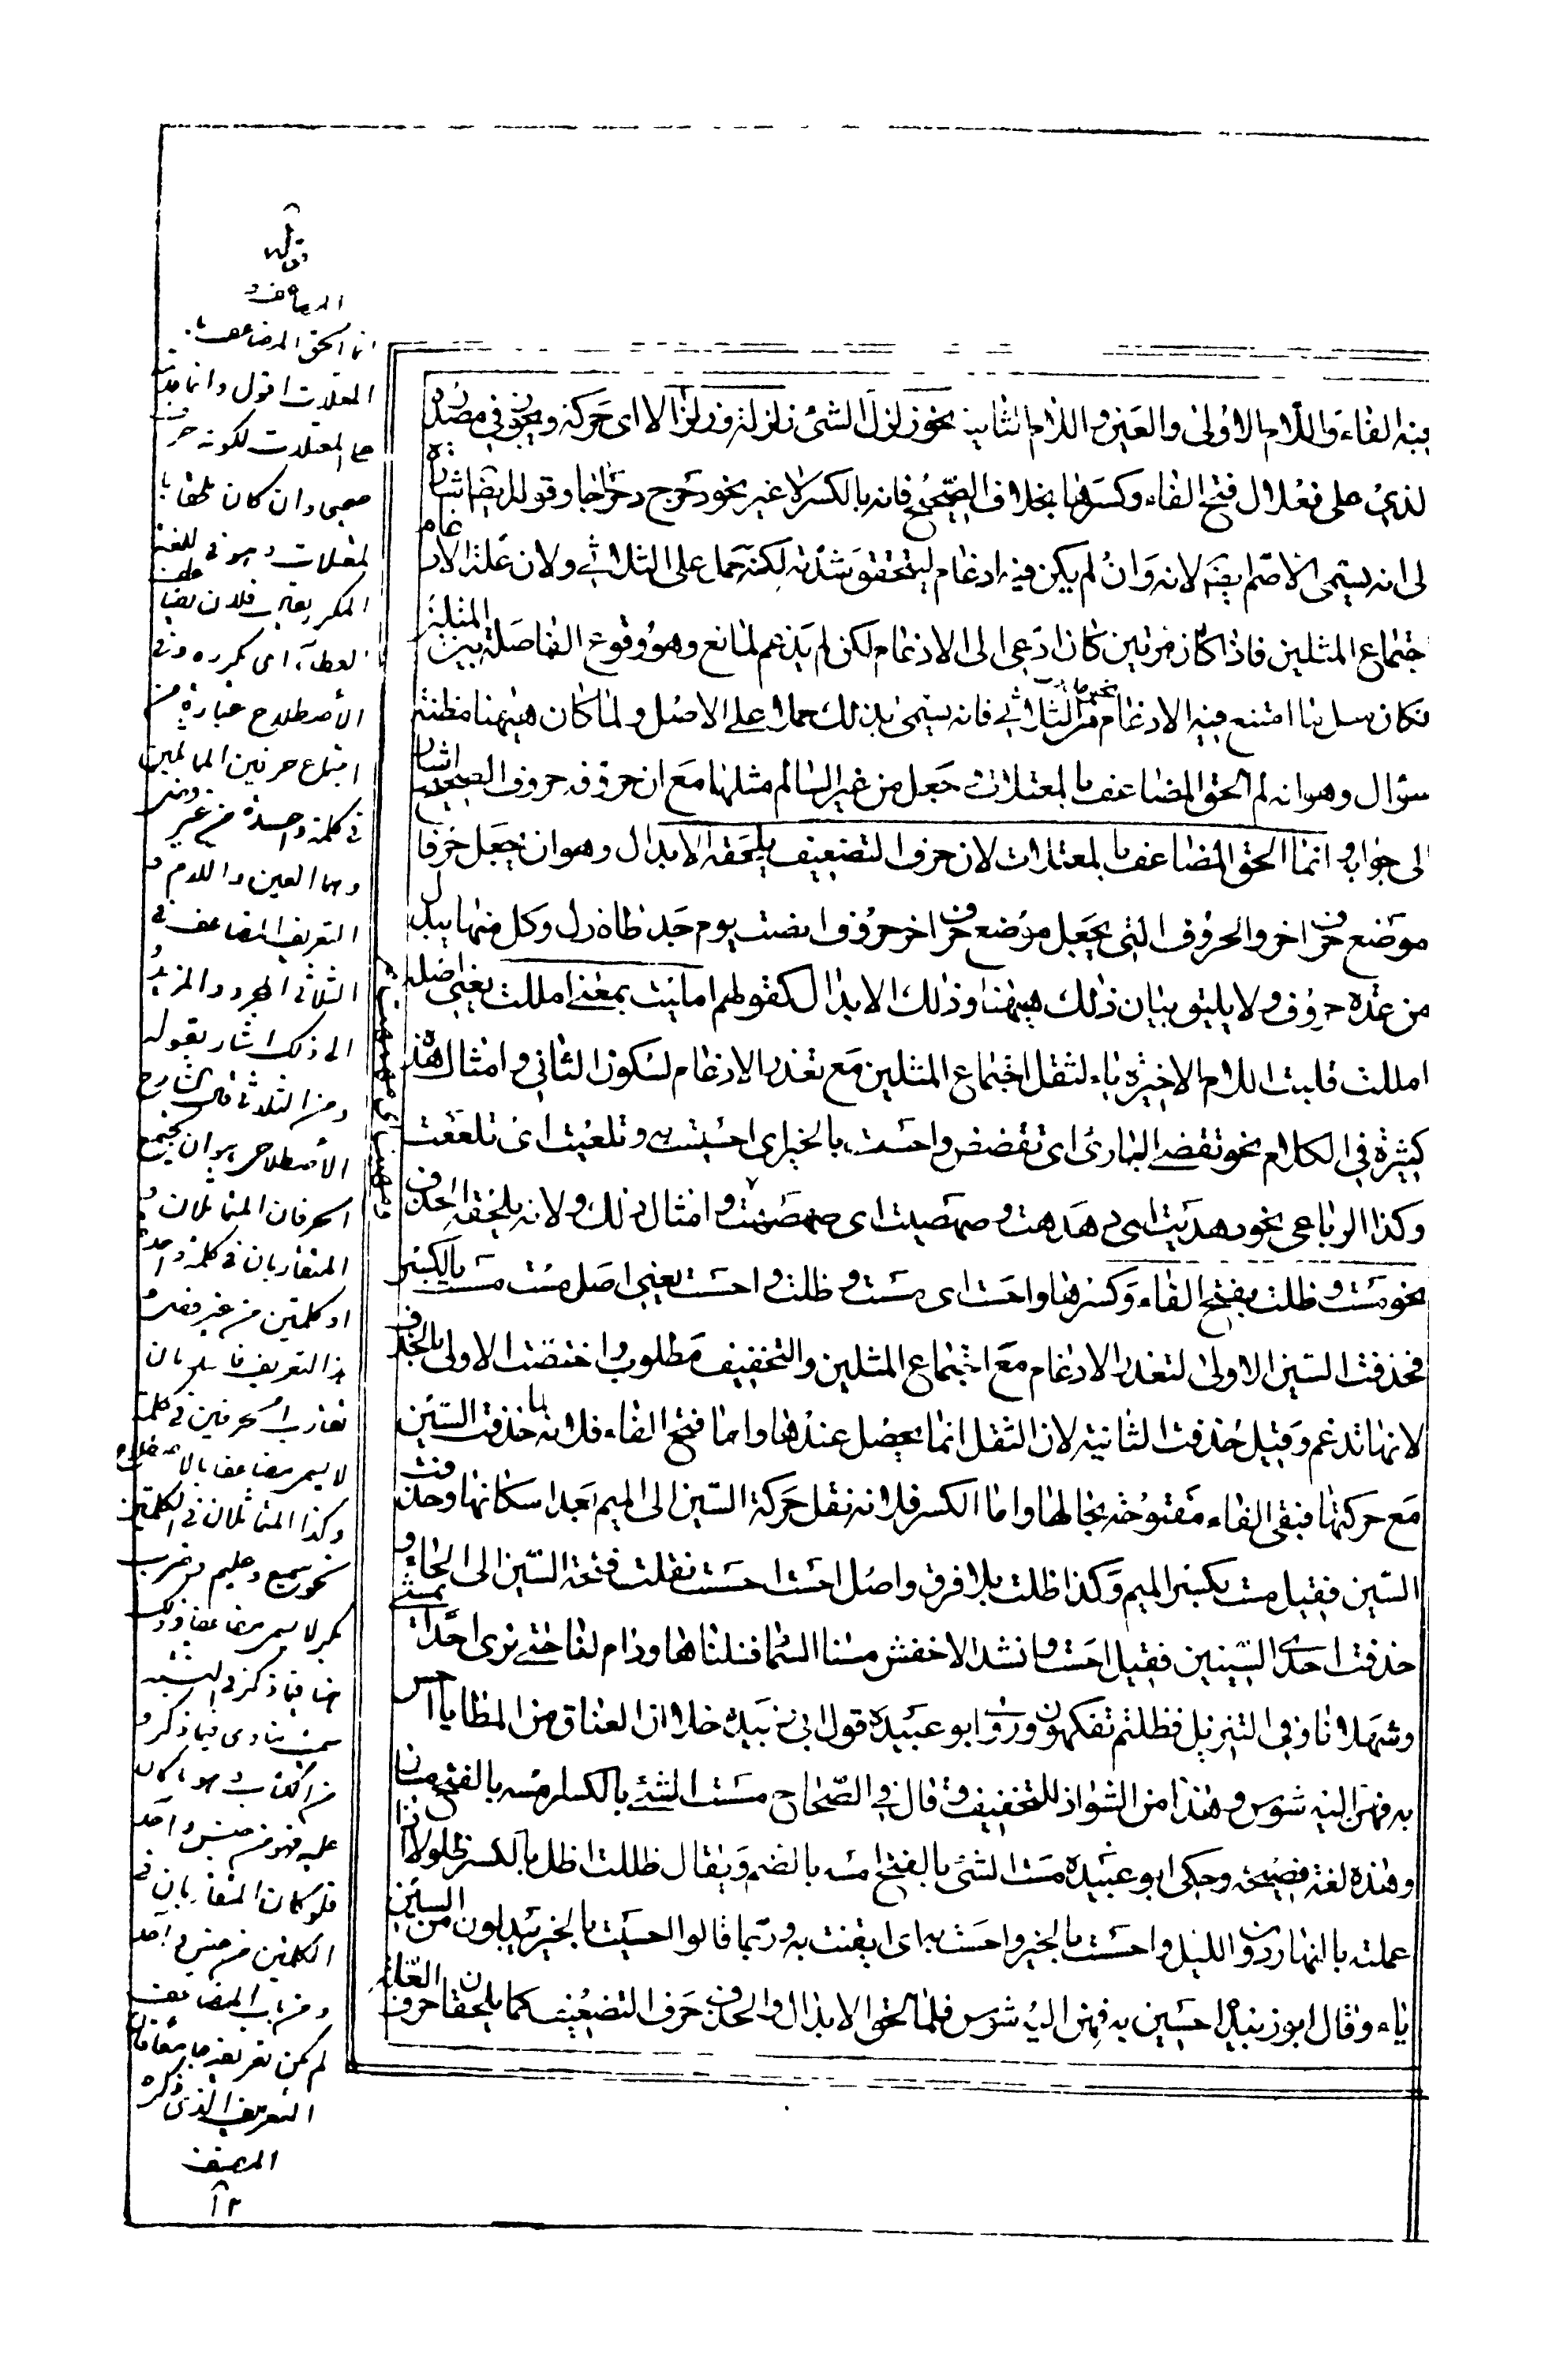 فيه الفاء واللام الاولى والعين واللام الثانية نحو زلزل الشئ زلزلة وزلزالا اى حركه ويجوز في مصدره
لذي على فعلال فتح الفاء وكسرها بخلاف الصحيح فانه بالكسر لا غير نحو دحرج دحراجا وقوله ايضا اشارة
لى انه يسمى الاصم ايضا لانه وان لم يكن فيه ادغام ليتحقق شدته لكنه حمل على الثلاثي ولان علة الادغام
جتماع المثلين فاذا كان مرتين كان ادعى الى الادغام لكن لم يدغم لمانع وهو وقوع الفاصلة بين المثلين
فكان مثل ما امتنع فيه الادغام من الثلاثي فانه يسمى بذلك حملا على الاصل ولما كان ههنا مظنة
سؤال وهو انه لم الحق المضاعف بالمعتلات جعل من غير السالم مثلها مع ان حروفه حروف الصحيح اشار
لى جوابه وانما الحق المضاعف بالمعتلات لان حرف التضعيف يلحقه الابدال وهو ان تجعل حرفا
موضع حرف اخر والحروف التي تجعل موضع حرف اخر حروف انصت يوم جد طاه زل وكل منها يبدل
من عدة حروف ولا يليق بيان ذلك ههنا وذلك الابدال كقولهم امليت بمعنى امللت يعني اصله
امللت قلبت اللام الاخيرة ياء لثقل اجتماع المثلين مع تعذر الادغام لسكون الثاني وامثال هذه
كثيرة في الكلام نحو تقضى البازي اى تقضض واحسيت بالخبر اى احسست به وتلعيت اى تلععت
وكذا الرباعي نحو دهديت اى دهدهت وصهصيت اى صهصهت وامثال ذلك ولانه يلحقه الحذف
نحو مست وظلت بفتح الفاء وكسرها واحست اى مسست وظللت واحسست يعني اصل مست مسست بالكسر
فحذفت السين الاولى لتعذر الادغام مع اجتماع المثلين والتخفيف مطلوب واختصت الاولى بالحذف
لانها تدغم وقيل حذفت الثانية لان الثقل انما يحصل عندها واما فتح الفاء فلانه لما حذفت السين
مع حركتها فبقى الفاء مفتوحة بحالها واما الكسر فلانه نقل حركة السين الى الميم بعد اسكانها وحذفت
السين فقيل مست بكسر الميم وكذا ظلت بلا فرق واصل احست احسست نقلت فتحة السين الى الحاء و
حذفت احدى السينين فقيل احست وانشد الاخفش مسنا السماء فنلناها ودام لنا حتى نرى احدا يمشي
وشهلانا وفي التنزيل فظلتم تفكهون وروى ابو عبيدة قول ابي زبيد خلا ان العتاق من المطايا احسن
به فهن اليه شوس وهذا من الشواذ للتخفيف وقال في الصحاح مسست الشئ بالكسر امسه بالفتح مسا
وهذه لغة فصيحة وحكى ابو عبيدة مسست الشئ بالفتح امسه بالضم ويقال ظللت اظل بالكسر ظلولا اذا
عملته بالنهار دون الليل واحسست بالخبر واحست به اى ايقنت به وربما قالوا احسيت بالخبر يبدلون من السين
ياء وقال ابو زبيد احسين به فهن اليه شوس فلما الحق الابدال والحذف حرف التضعيف كما يلحقان حرف العلة
قوله
انما الحق المضاعف با
المعتلات اقول وانما
لمعتلات وهو في اللغة
الاصطلاح عبارة من
اجتماع حرفين المتماثلين
في كلمة واحدة من غير
وهما العين واللام و
التعريف المضاعف في
الثلاثي المجرد والمزيد
الى ذلك اشار بقوله
الاصطلاحى هو ان يجتمع
الحرفان المتماثلان و
المتقاربان في كلمة واحدة
او كلمتين من غير
تقارب الحرفين في كلمة
لا يسمى مضاعفا
وكذا المتماثلان في الكلمتين
فلو كان المتقاربان في
الكلمتين من جنس واحد
من باب المضاعف
لم يكن تعريفه جامعا
التعريف الذي ذكره
المصنف
١٢